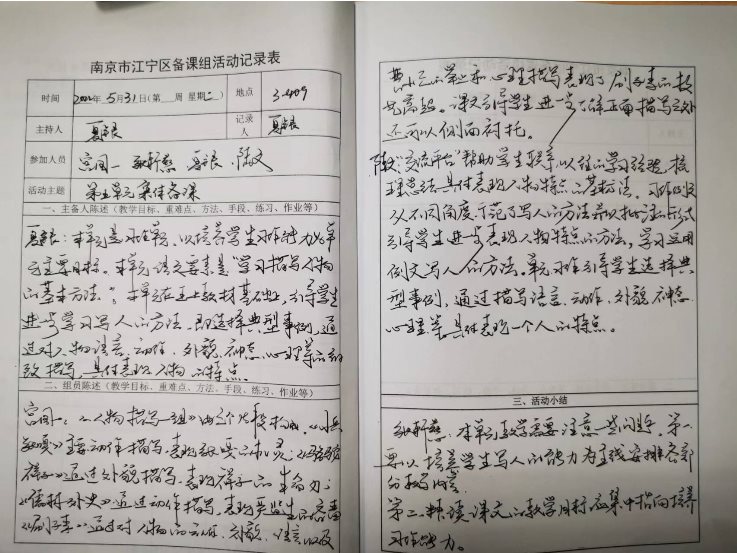 南京市江宁区备课组活动记录表
时间 2022年5月31日(第 周 星期二) 地点 3-409
主持人 记录人
参加人员 宫同一
活动主题 第五单元集体备课
一、主备人陈述(教学目标、重难点、方法、手段、练习、作业等)
本单元是习作单元,以培养学生习作能力为单
元主要目标。本单元语文要素是“学习描写人物
的基本方法”。本单元在五上教材基础上,引导学生
进一步学习写人的方法,即选择典型事例,通
过对人物语言、动作、外貌、神态、心理等的细
致描写,具体表现人物的特点。
二、组员陈述(教学目标、重难点、方法、手段、练习、作业等)
宫同一:《人物描写一组》由三个片段构成,《小兵
张嘎》主要动作描写,表现嘎子的机灵;《骆驼
祥子》通过外貌描写,表现祥子的生命力;
《儒林外史》通过动作描写,表现严监生的吝啬
《刷子李》通过对人物的动作、外貌、语言以及
曹小三的 心理描写表现了刷子李的技
艺高超。课文引导学生进一步了解正面描写之外
还可以侧面衬托。
“交流平台”帮助学生 以往的学习经验,梳
理总结具体表现人物特点的基本方法。习作例文
从不同角度示范了写人的方法并以批注形式
引导学生进一步表现人物特点的方法,学习运用
例文写人的方法。单元习作引导学生选择典
型事例,通过描写语言、动作、外貌、神态、
心理等,具体表现一个人的特点。
三、活动小结
本单元教学需要注意一些问题,第一
要以培养学生写人的能力为主线安排各部
分教学内容。
第二,精读课文的教学目标应集中指向培养
习作能力。